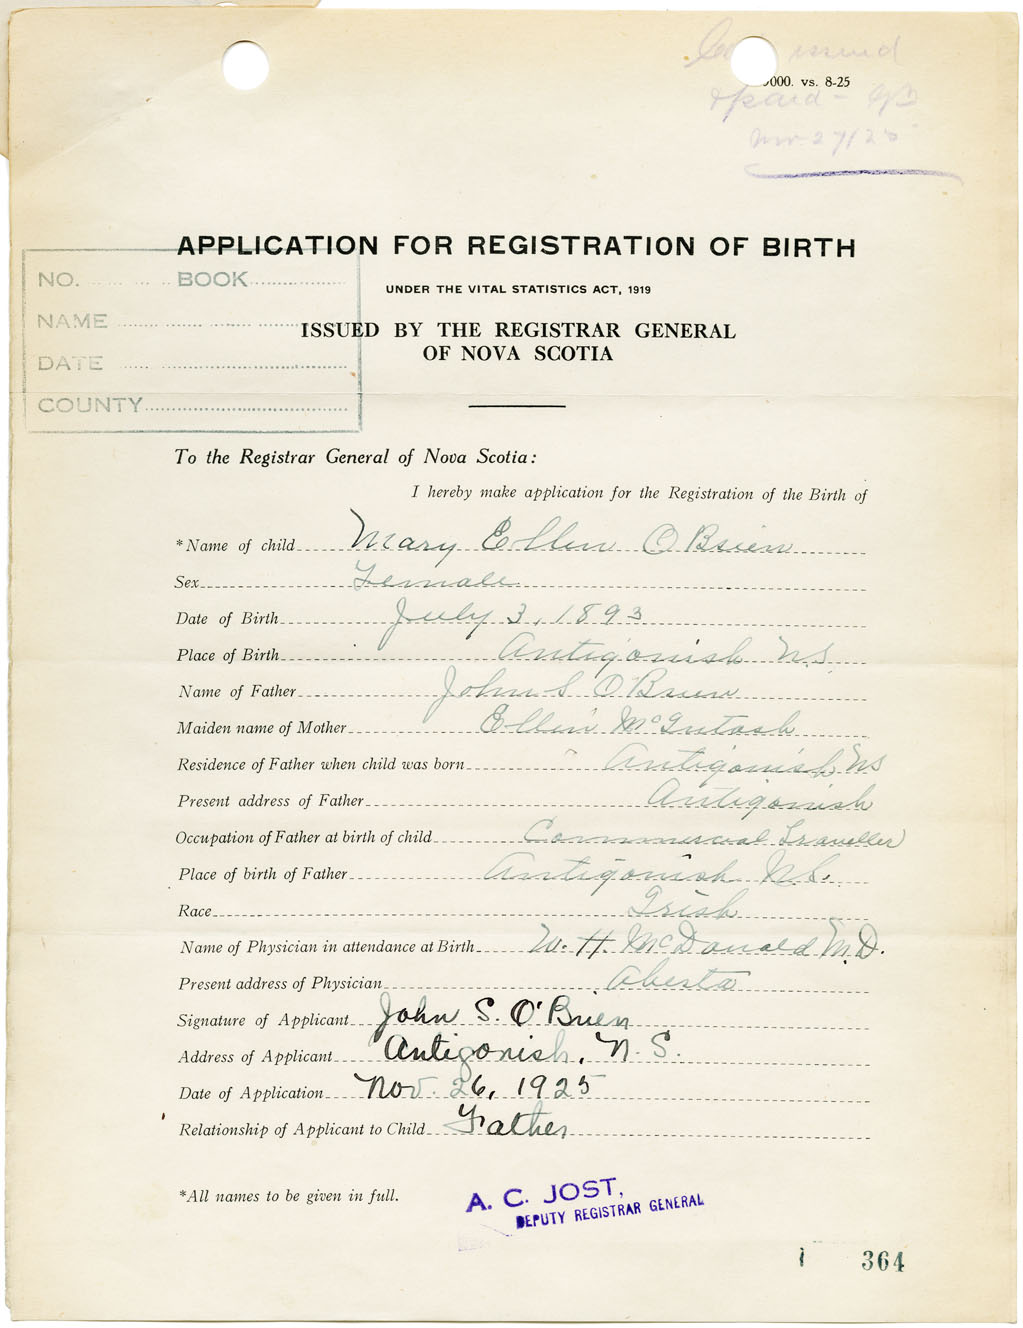 issued
000. vs. 8-25
& paid - 
Nov. 27/25
APPLICATION FOR REGISTRATION OF BIRTH
NO. BOOK
UNDER THE VITAL STATISTICS ACT, 1919
NAME
ISSUED BY THE REGISTRAR GENERAL
OF NOVA SCOTIA
DATE
COUNTY
To the Registrar General of Nova Scotia:
I hereby make application for the Registration of the Birth of
*Name of child Mary Ellen O'Brien
Sex Female
Date of Birth July 3, 1893
Place of Birth Antigonish N.S.
Name of Father John S. O'Brien
Maiden name of Mother Ellen McIntosh
Residence of Father when child was born Antigonish NS
Present address of Father Antigonish
Occupation of Father at birth of child Commercial Traveller
Place of birth of Father Antigonish N.S.
Race Irish
Name of Physician in attendance at Birth W. H. McDonald M.D.
Present address of Physician
Signature of Applicant John S. O'Brien
Address of Applicant Antigonish, N.S.
Date of Application Nov. 26, 1925
Relationship of Applicant to Child Father
*All names to be given in full.
A. C. JOST,
DEPUTY REGISTRAR GENERAL
364